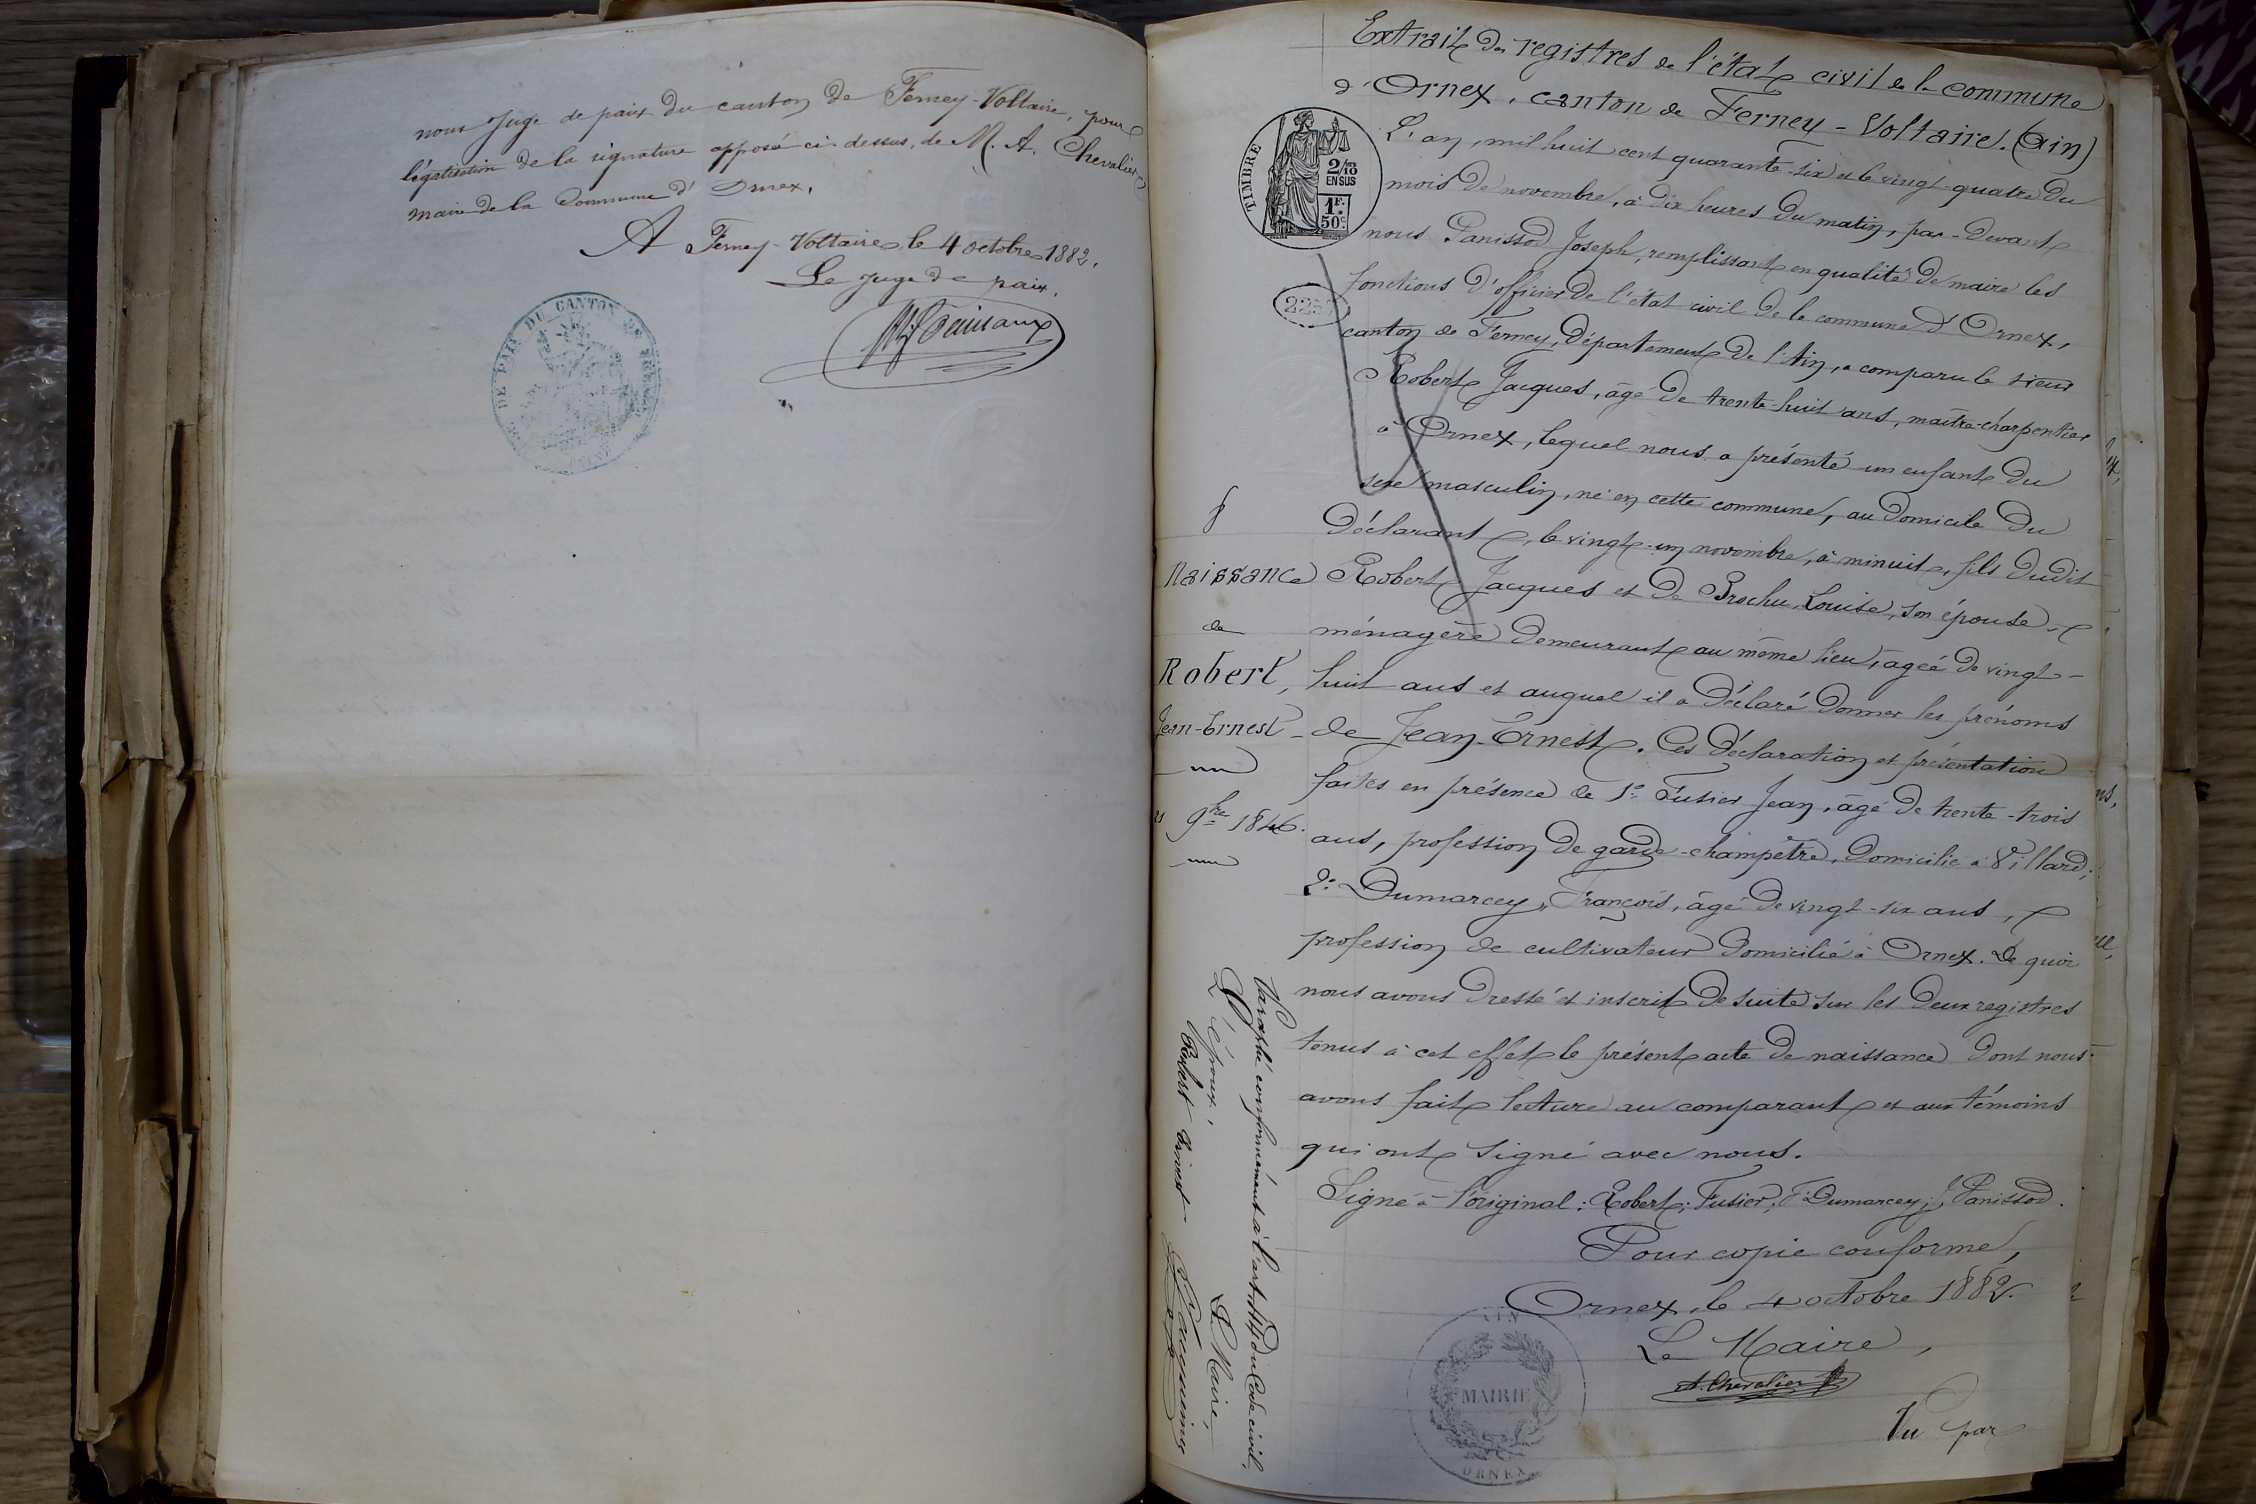 nous Juge de paix du canton de Ferney-Voltaire, pour
légalisation de la signature apposée ci-dessus, de M. A. Chevalier
maire de la Commune d'Ornex.
A Ferney-Voltaire, le 4 octobre 1882.
Le Juge de paix,
DE PAIX DU CANTON DE
Extrait des registres de l'état civil de la commune
d'Ornex, canton de Ferney-Voltaire. (Ain)
TIMBRE
2/10
EN SUS
1F.
50c.
L'an, mil huit cent quarante-six et le vingt-quatre du
mois de novembre, à dix heures du matin, par-devant
nous Panissod Joseph, remplissant en qualité de maire les
fonctions d'officier de l'état civil de la commune d'Ornex,
canton de Ferney, département de l'Ain, a comparu le sieur
Robert Jacques, âgé de trente-huit ans, maître-charpentier
à Ornex, lequel nous a présenté un enfant du
sexe masculin, né en cette commune, au domicile du
déclarant, le vingt-un novembre, à minuit, fils dudit
Robert Jacques et de Brochu, Louise, son épouse,
ménagère demeurant au même lieu, âgée de vingt-
huit ans et auquel il a déclaré donner les prénoms
de Jean-Ernest. Ces déclaration et présentation
faites en présence de 1° Fusier Jean, âgé de trente-trois
ans, profession de garde-champêtre, domicilié à Villard;
2° Dumarcey, François, âgé de vingt-six ans,
profession de cultivateur domicilié à Ornex. De quoi
nous avons dressé et inscrit de suite sur les deux registres
tenus à cet effet le présent acte de naissance dont nous
avons fait lecture au comparant et aux témoins
qui ont signé avec nous.
Signé à l'original: Robert; Fusier; F. Dumarcey; J. Panissod.
Pour copie conforme,
Ornex, le 4 octobre 1882.
Le Maire,
A. Chevalier
AIN
MAIRIE
ORNEX
Vu par
Naissance
de
Robert,
Jean-Ernest
21 9bre 1846.
Paraphé conformément à l'art. 44 du Code civil,
L'époux,
Le Maire,
Robert Ernest